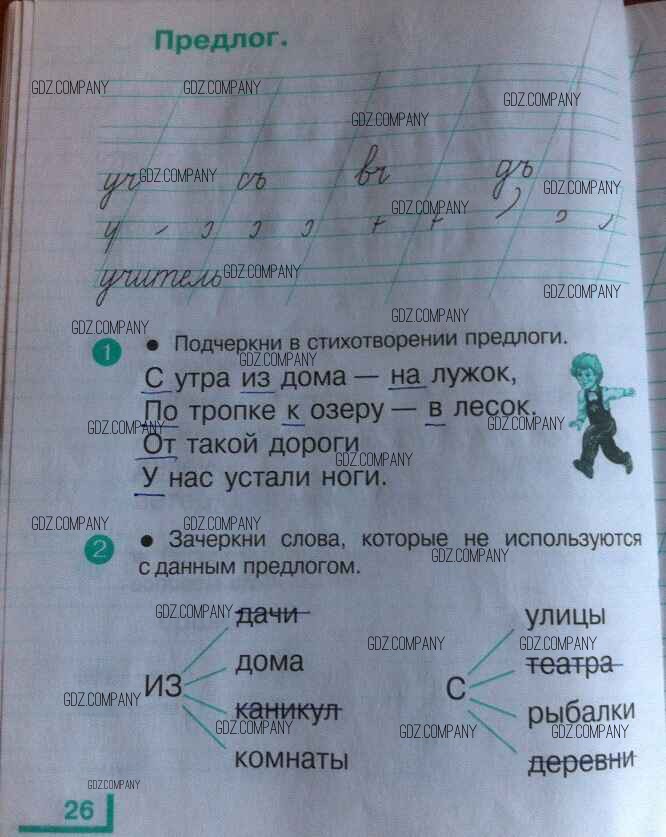 Предлог.
GDZ.COMPANY GDZ.COMPANY GDZ.COMPANY
GDZ.COMPANY
уч GDZ.COMPANY съ вч дъ
GDZ.COMPANY
GDZ.COMPANY
у
учитель GDZ.COMPANY
GDZ.COMPANY
GDZ.COMPANY GDZ.COMPANY
1 • Подчеркни в стихотворении предлоги.
GDZ.COMPANY
С утра из дома — на лужок,
По тропке к озеру — в лесок.
GDZ.COMPANY GDZ.COMPANY
От такой дороги
GDZ.COMPANY
У нас устали ноги.
GDZ.COMPANY GDZ.COMPANY
2 • Зачеркни слова, которые не используются
GDZ.COMPANY
с данным предлогом.
GDZ.COMPANY дачи улицы
GDZ.COMPANY GDZ.COMPANY
дома театра
из с
GDZ.COMPANY
каникул рыбалки
GDZ.COMPANY GDZ.COMPANY GDZ.COMPANY
комнаты деревни
GDZ.COMPANY
26